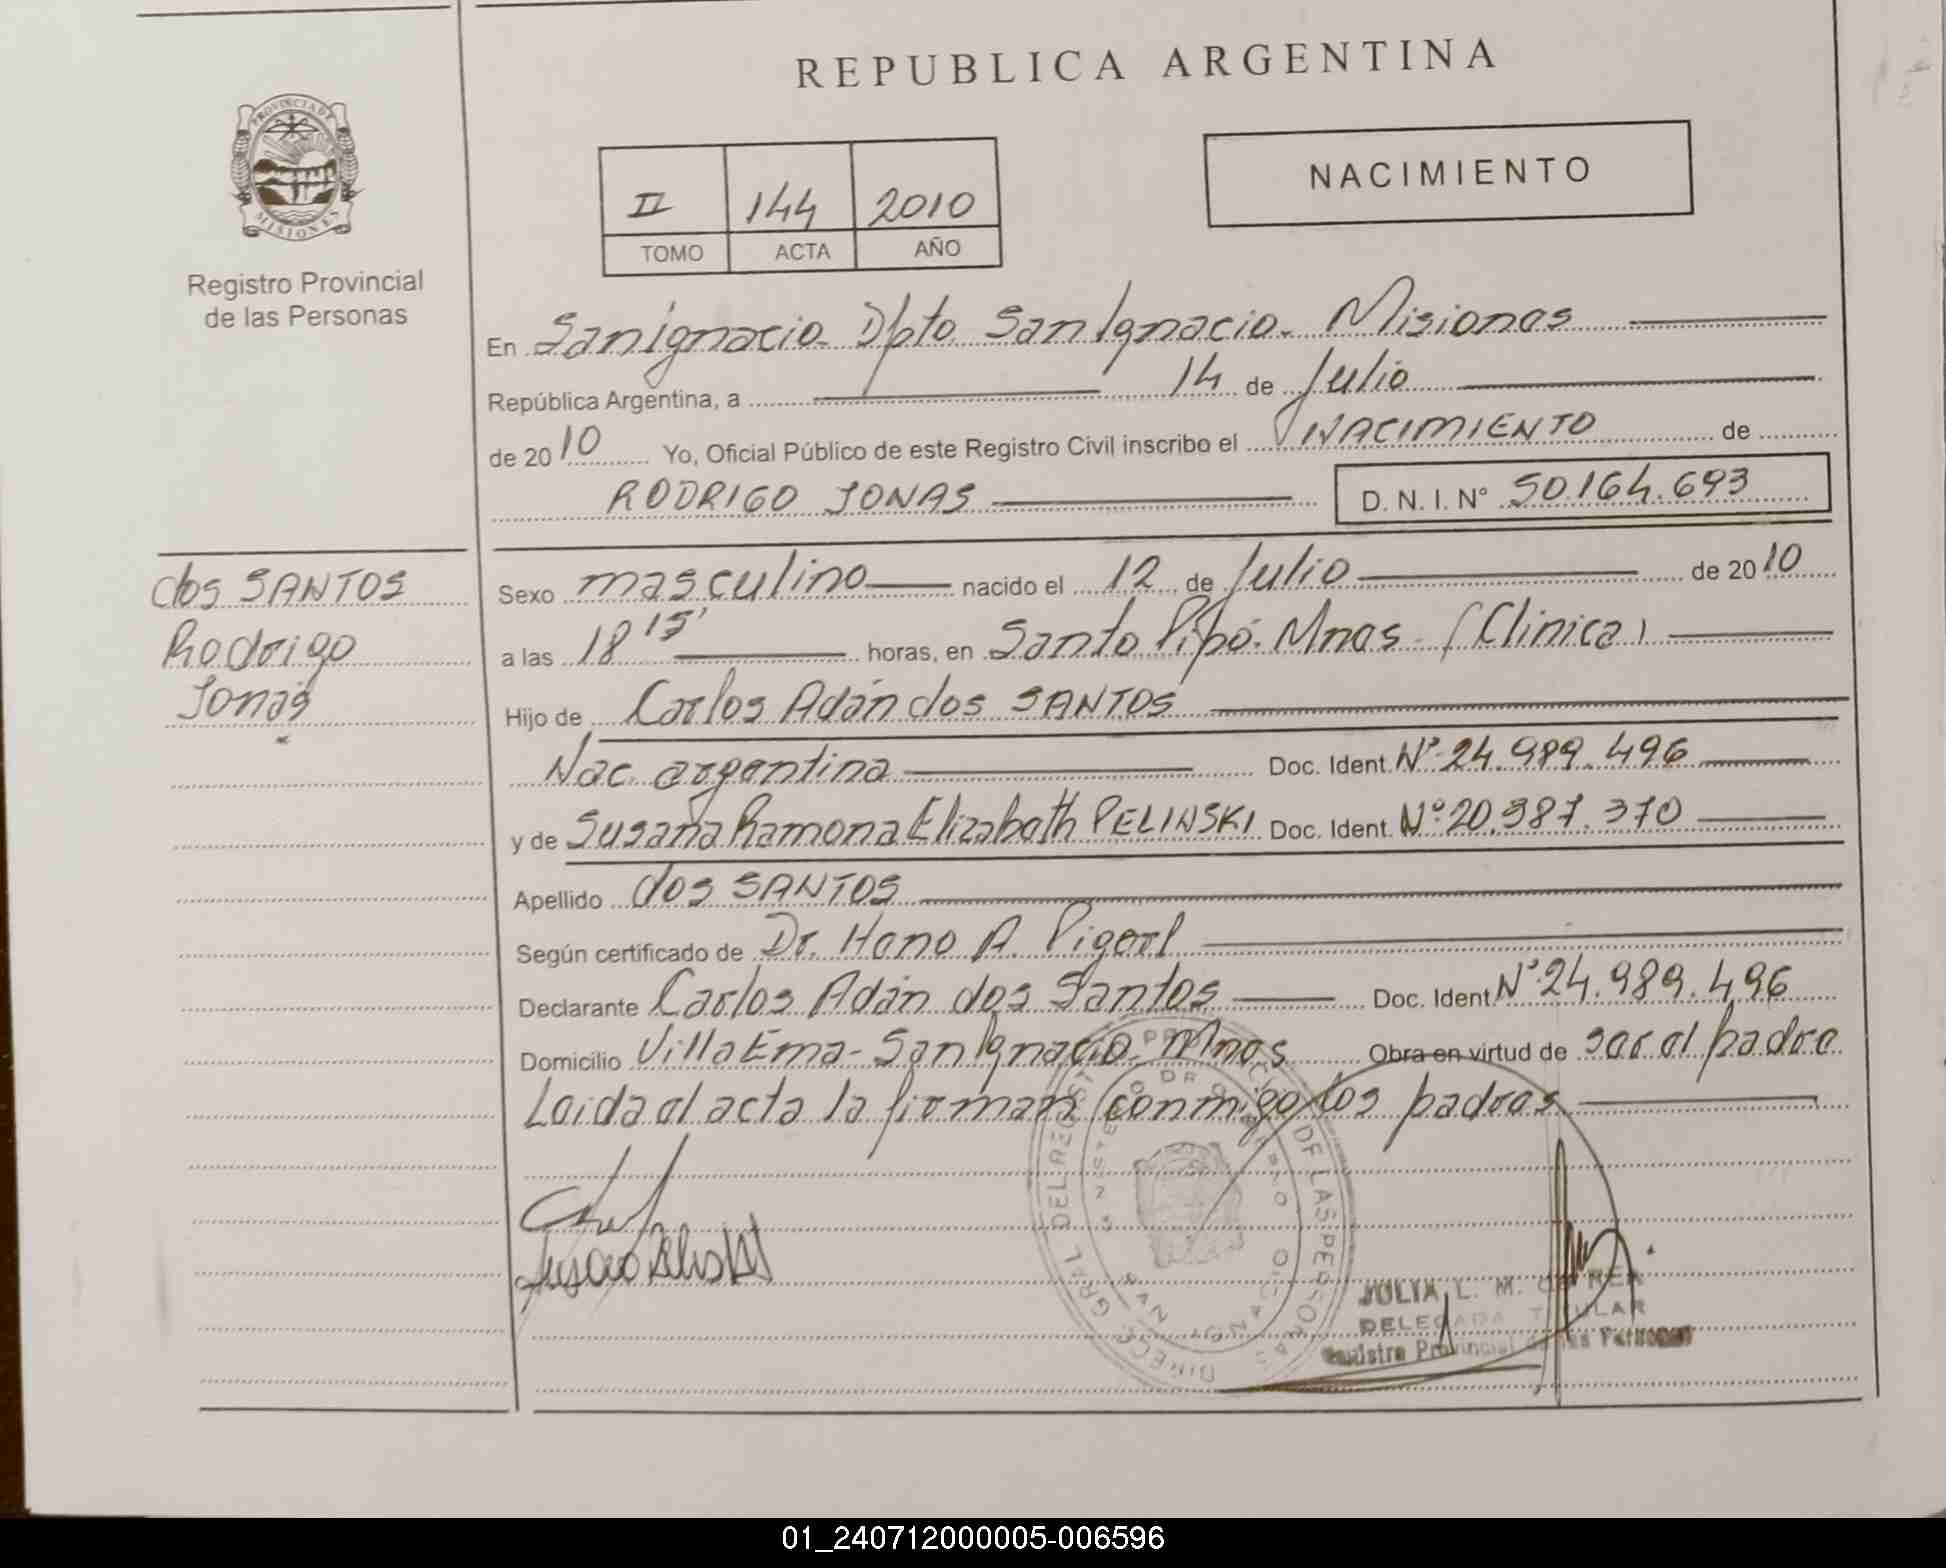 REPUBLICA ARGENTINA
PROVINCIA DE
MISIONES
Registro Provincial
de las Personas
II 144 2010
TOMO ACTA AÑO
NACIMIENTO
En San Ignacio. Dpto San Ignacio. Misiones
República Argentina, a 14 de Julio
de 2010 Yo, Oficial Público de este Registro Civil inscribo el NACIMIENTO de
RODRIGO JONAS D. N. I. N° 50.164.693
dos SANTOS
Rodrigo
Jonás
Sexo masculino nacido el 12 de Julio de 2010
a las 18 15' horas, en Santo Pipó. Mnes. (Clinica)
Hijo de Carlos Adán dos SANTOS
Nac. argentina Doc. Ident. N° 24.989.496
y de Susana Ramona Elizabeth PELINSKI Doc. Ident. N° 20.387.370
Apellido dos SANTOS
Según certificado de Dr. Hano A.
Declarante Carlos Adán dos Santos Doc. Ident N° 24.989.496
Domicilio Villa Ema - San Ignacio Mnes Obra en virtud de ser el padre
Leida el acta la firman conmigo los padres
JULIA L. M.
DELEGADA TITULAR
Registro Provincial de las Personas
01_240712000005-006596